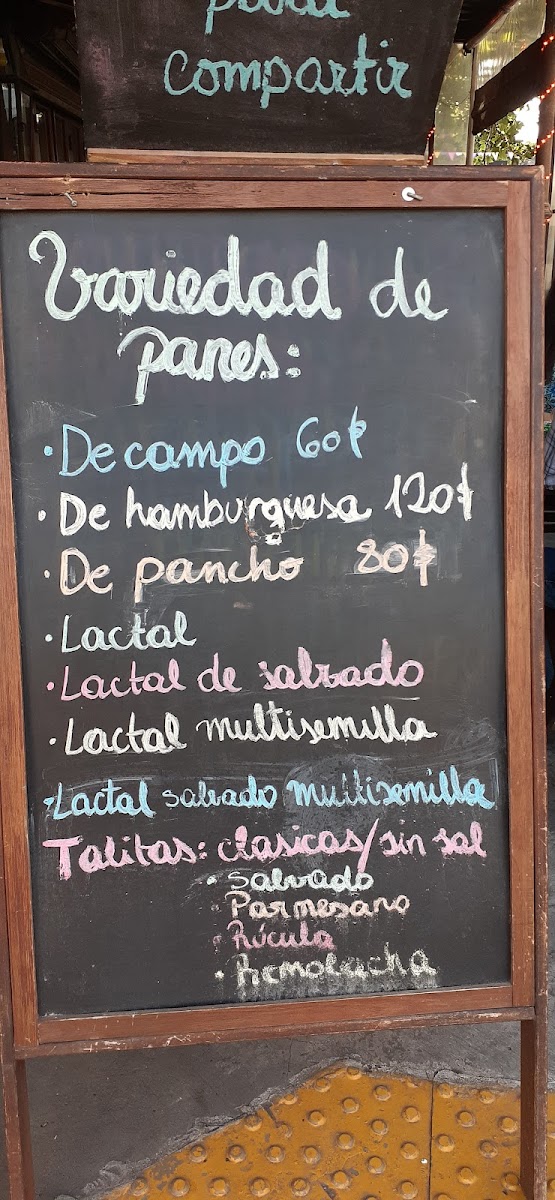 para
compartir
Variedad de
panes:
· De campo 60$
· De hamburguesa 120$
· De pancho 80$
· Lactal
· Lactal de salvado
· Lactal multisemilla
· Lactal salvado multisemilla
Talitas: clasicas/sin sal
· Salvado
· Parmesano
· Rúcula
· Remolacha